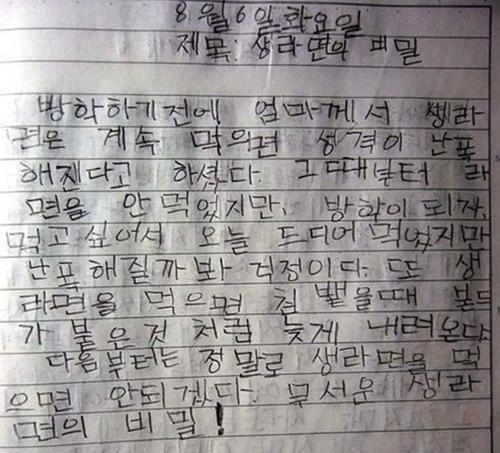 8월6일화요일
제목: 생라면의 비밀
방학하기전에 엄마께서 생라
면은 계속 먹으면 성격이 난폭
해진다고 하셨다. 그때부터 라
면을 안 먹었지만, 방학이 되자,
먹고 싶어서 오늘 드디어 먹었지만
난폭해질까봐 걱정이다. 또 생
라면을 먹으면 침 뱉을때 본드
가 붙은것 처럼 늦게 내려온다
다음부터는 정말로 생라면을 먹
으면 안되겠다. 무서운 생라
면의 비밀!